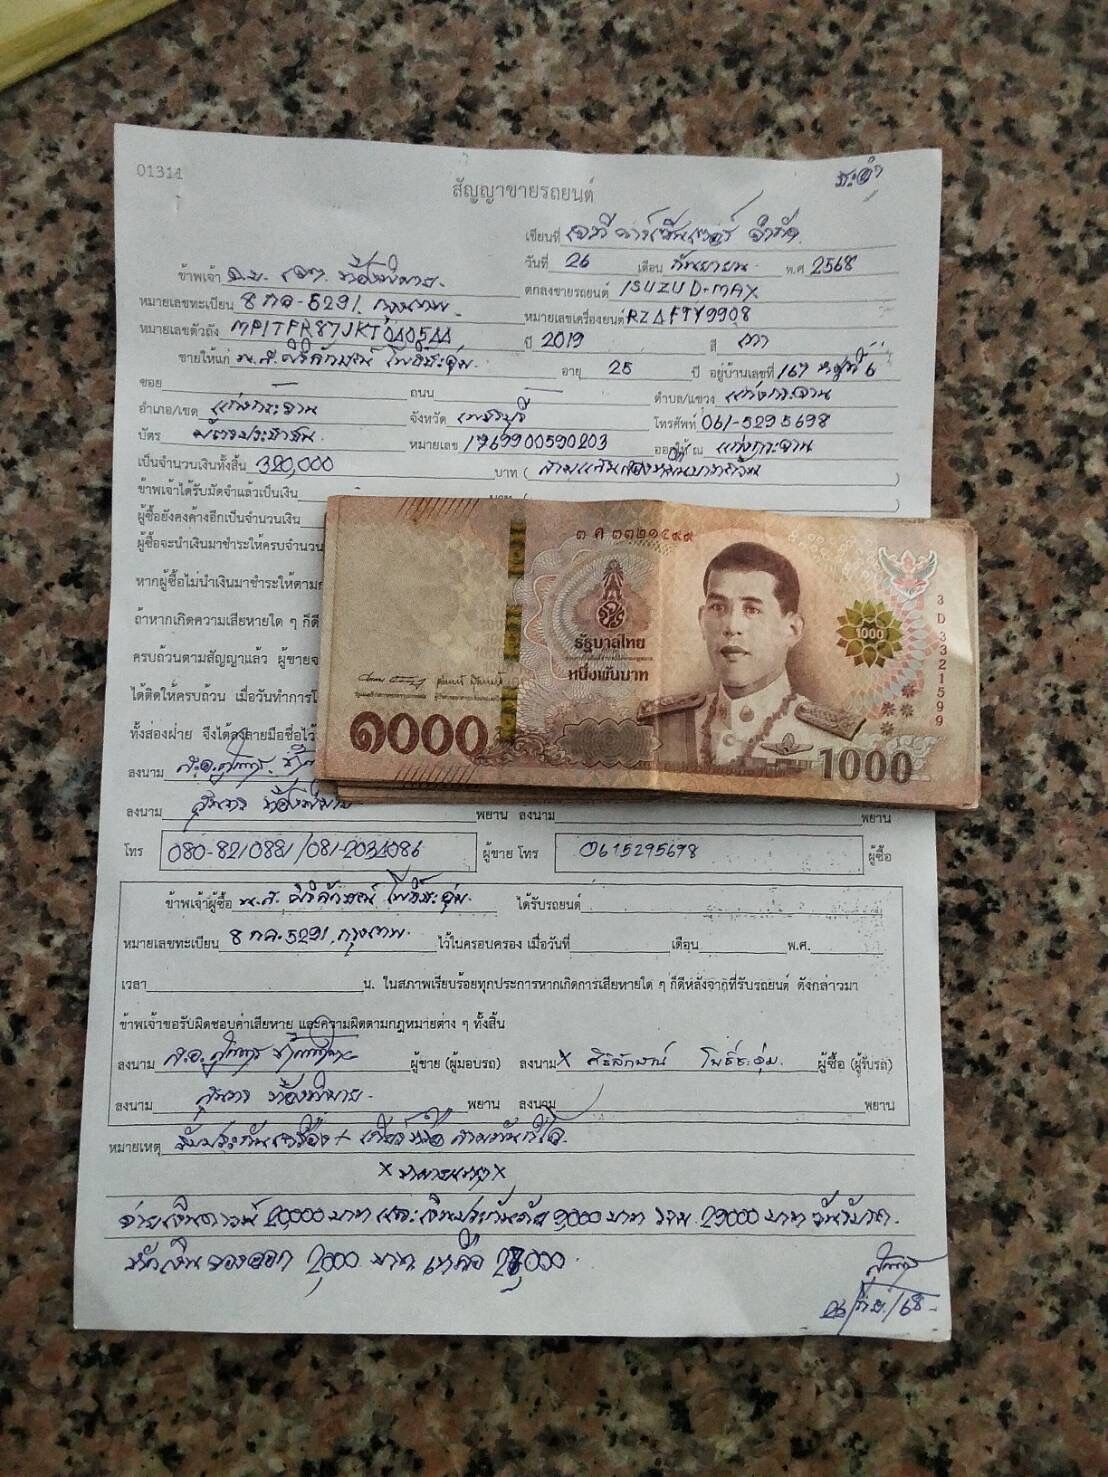 01314
สัญญาขายรถยนต์
เขียนที่ จำกัด
วันที่ 26 เดือน กันยายน พ.ศ 2568
ข้าพเจ้า
ตกลงขายรถยนต์ ISUZU D-MAX
หมายเลขทะเบียน 8 กค-5291 กรุงเทพ
หมายเลขเครื่องยนต์ RZ4FTY9908
หมายเลขตัวถัง ปี 2019 สี เทา
ขายให้แก่ น.ส. ศิริลักษณ์ โพธิ์ชะอุ่ม อายุ 25 ปี อยู่บ้านเลขที่ 167 หมู่ที่ 6
ซอย - ถนน - ตำบล/แขวง แก่งกระจาน
อำเภอ/เขต แก่งกระจาน จังหวัด เพชรบุรี โทรศัพท์ 061-5295698
บัตร บัตรประชาชน หมายเลข 1769900590203 ออกให้ ณ แก่งกระจาน
เป็นจำนวนเงินทั้งสิ้น 320,000 บาท ( สามแสนสองหมื่นบาทถ้วน )
ข้าพเจ้าได้รับมัดจำแล้วเป็นเงิน
ผู้ซื้อยังคงค้างอีกเป็นจำนวนเงิน
ผู้ซื้อจะนำเงินมาชำระให้ครบจำนวน
หากผู้ซื้อไม่นำเงินมาชำระให้ตาม
ถ้าหากเกิดความเสียหายใด ๆ ก็ดี
ครบถ้วนตามสัญญาแล้ว ผู้ขายจ
ได้ติดให้ครบถ้วน เมื่อวันทำการโ
ทั้งสองฝ่าย จึงได้ลงลายมือชื่อไว้
๓ ศ ๓๓๒๑๕๙๙
3D3321599
รัฐบาลไทย
หนึ่งพันบาท
1000
๑๐๐๐ 1000
ลงนาม
ลงนาม พยาน ลงนาม พยาน
โทร 080-8210881/081-2034086 ผู้ขาย โทร 0615295698 ผู้ซื้อ
ข้าพเจ้าผู้ซื้อ น.ส. ศิริลักษณ์ โพธิ์ชะอุ่ม ได้รับรถยนต์
หมายเลขทะเบียน 8 กค-5291 กรุงเทพ ไว้ในครอบครอง เมื่อวันที่ เดือน พ.ศ.
เวลา น. ในสภาพเรียบร้อยทุกประการหากเกิดการเสียหายใด ๆ ก็ดีหลังจากที่รับรถยนต์ ดังกล่าวมา
ข้าพเจ้าขอรับผิดชอบค่าเสียหาย และความผิดตามกฎหมายต่าง ๆ ทั้งสิ้น
ลงนาม ผู้ขาย (ผู้มอบรถ) ลงนาม x ศิริลักษณ์ โพธิ์ชะอุ่ม ผู้ซื้อ (ผู้รับรถ)
ลงนาม พยาน ลงนาม พยาน
หมายเหตุ รับประกันเครื่อง + เกียร์
จ่ายเงินดาวน์ 20,000 บาท และเงินประกันภัย 9,000 บาท รวม 29,000 บาท
หักเงินจองออก 2,000 บาท เหลือ 27,000
26/ก.ย./68